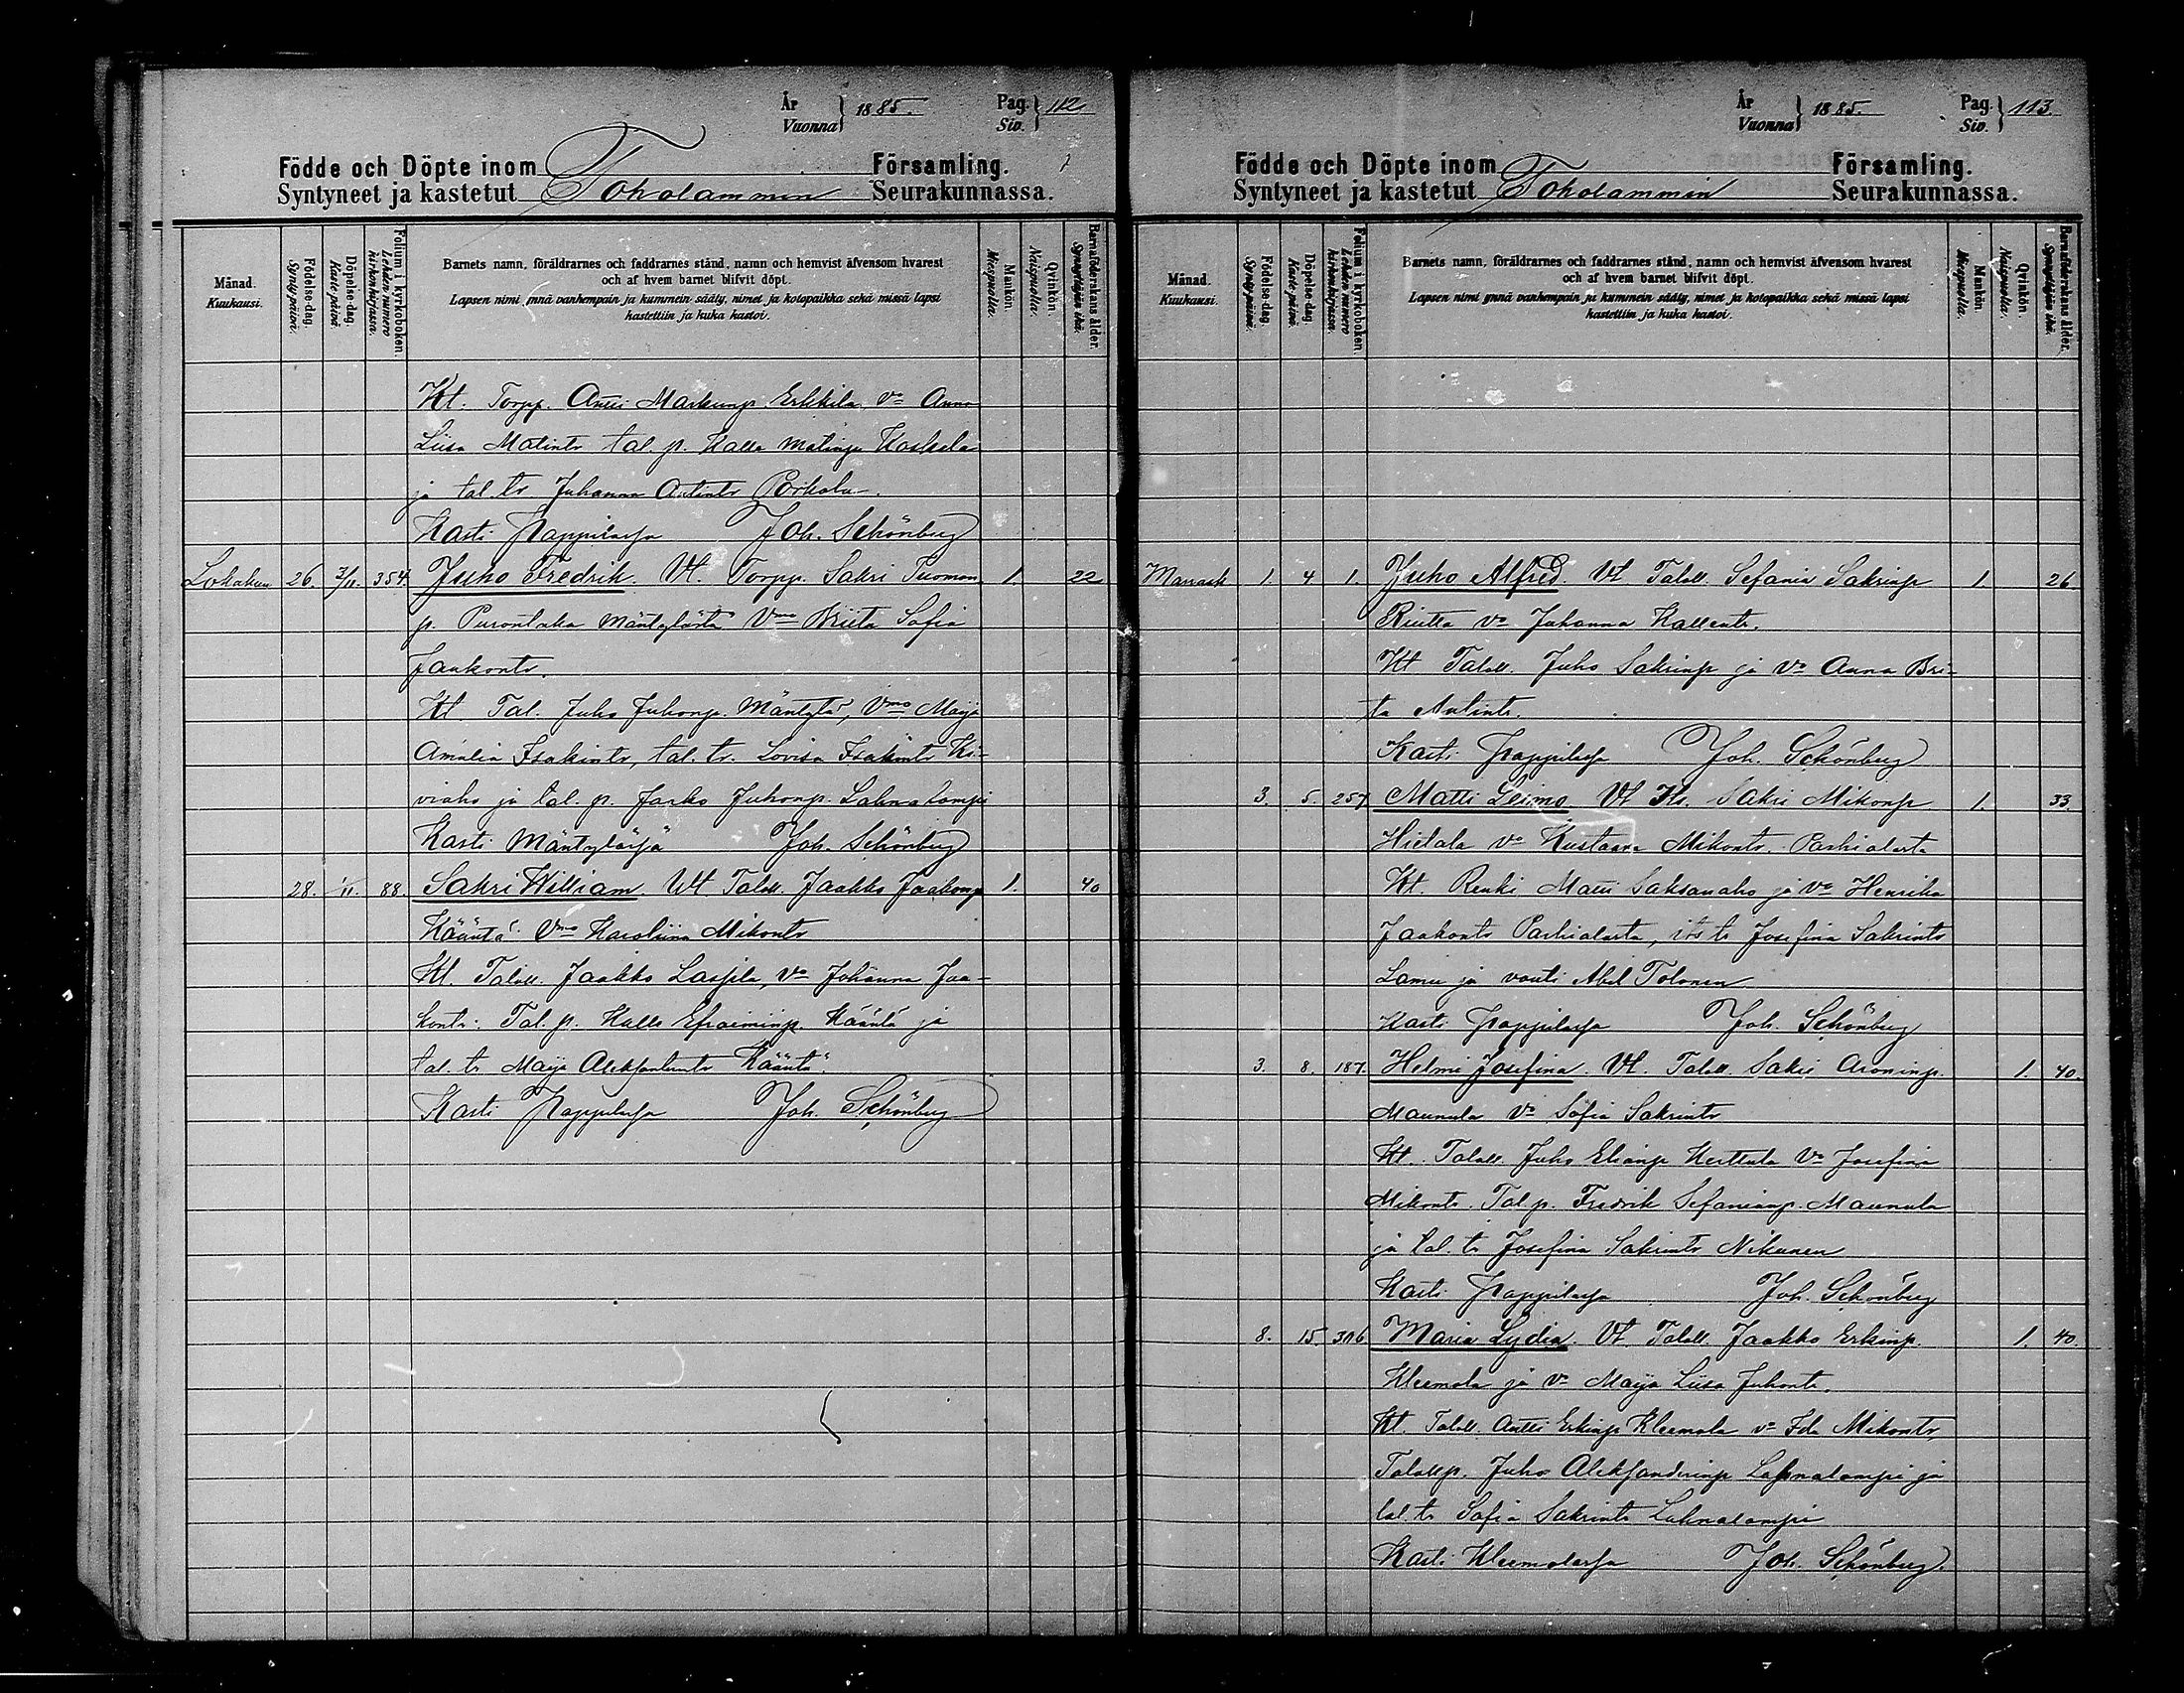 År
Vuonna } 1885. Pag.
Siv. } 112
Födde och Döpte inom Församling.
Syntyneet ja kastetut Toholammin Seurakunnassa.
Månad.
Kuukausi.
Födelse-dag.
Synty-päivä.
Döpelse-dag.
Kaste-päivä.
Folium i kyrkoboken.
Lehden numero kirkonkirjassa.
Barnets namn, föräldrarnes och faddrarnes stånd, namn och hemvist äfvensom hvarest
och af hvem barnet blifvit döpt.
Lapsen nimi ynnä vanhempain ja kummein sääty, nimet ja kotopaikka sekä missä lapsi
kastettiin ja kuka kastoi.
Mankön.
Miespuolia.
Qvinkön.
Naispuolia.
Barnaföderskans ålder.
Synnyttäjän ikä.
Kt. Torpp. Antti Markunp. Erkkila Vo Anna
Liisa Matintr tal. p. Kalle Matinp. Koskela
ja tal. tr Juhanna Antintr Porkola.
Kasti Pappilassa Joh. Schönberg
Lokakuu 26. 3/11. 354. Juho Fredrik. Vt. Torpp. Sakri Tuomon 1. 22
p. Purontaka Mäntylästä Vmo Briita Sofia
Jaakontr.
Kt Tal. Juho Juhonp. Mäntylä, Vmo Maija
Amalia Isakintr, tal. tr. Lovisa Isakintr Ki-
viaho ja tal. p. Jaako Juhonp. Lahnalampi
Kasti Mäntylässä Joh. Schönberg
28. 1/11. 88. Sakri William. Vt. Taloll. Jaakko Jaakonp 1. 40
Kääntä Vmo Karoliina Mikontr
Kt. Taloll. Jaakko Laspila, Vo Johanna Jaa-
kontr. Tal. p. Kalle Efraiminp. Kääntä ja
tal. tr Maija Aleksantintr Kääntä.
Kasti Pappilassa Joh. Schönberg
År
Vuonna } 1885. Pag.
Siv. } 113.
Födde och Döpte inom Församling.
Syntyneet ja kastetut Toholammin Seurakunnassa.
Månad.
Kuukausi.
Födelse-dag.
Synty-päivä.
Döpelse-dag.
Kaste-päivä.
Folium i kyrkoboken.
Lehden numero kirkonkirjassa.
Barnets namn, föräldrarnes och faddrarnes stånd, namn och hemvist äfvensom hvarest
och af hvem barnet blifvit döpt.
Lapsen nimi ynnä vanhempain ja kummein sääty, nimet ja kotopaikka sekä missä lapsi
kastettiin ja kuka kastoi.
Mankön.
Miespuolia.
Qvinkön.
Naispuolia.
Barnaföderskans ålder.
Synnyttäjän ikä.
Marrask 1. 4 1. Juho Alfred. Vt Taloll. Sefania Sakrinp 1. 26.
Riutta vo Johanna Kallentr.
Kt Taloll. Juho Sakrinp ja vo Anna Bri-
ta Antintr.
Kasti Pappilassa Joh. Schönberg
3. 5. 257 Matti Leimo Vt Its. Sakri Mikonp 1. 33.
Hietala vo Kustaava Mikontr. Parhialasta
Kt. Renki Matti Saksanaho ja vo Henrika
Jaakontr Parhialasta, its tr Josefina Sakrintr
Lamu ja vouti Abel Tolonen
Kasti Pappilassa Joh. Schönberg
3. 8. 187. Helmi Josefina. Vt. Taloll. Sakri Aroninp. 1. 40.
Maunula Vo Sofia Sakrintr
Kt. Taloll. Juho Elianp Herttula Vo Josefina
Mikontr. Tal p. Fredrik Sefanianp. Maunula
ja tal. tr Josefina Sakrintr Nikunen
Kasti Pappilassa Joh. Schönberg
8. 15. 316 Maria Lydia. Vt. Taloll. Jaakko Erkinp. 1. 40.
Kleemola ja vo Maija Liisa Juhontr.
Kt. Taloll. Antti Erkinp Kleemola vo Ida Mikontr,
Talollp. Juho Aleksanderinp Lahnalampi ja
tal. tr Sofia Sakrintr Lahnalampi
Kasti Kleemolassa Joh. Schönberg.